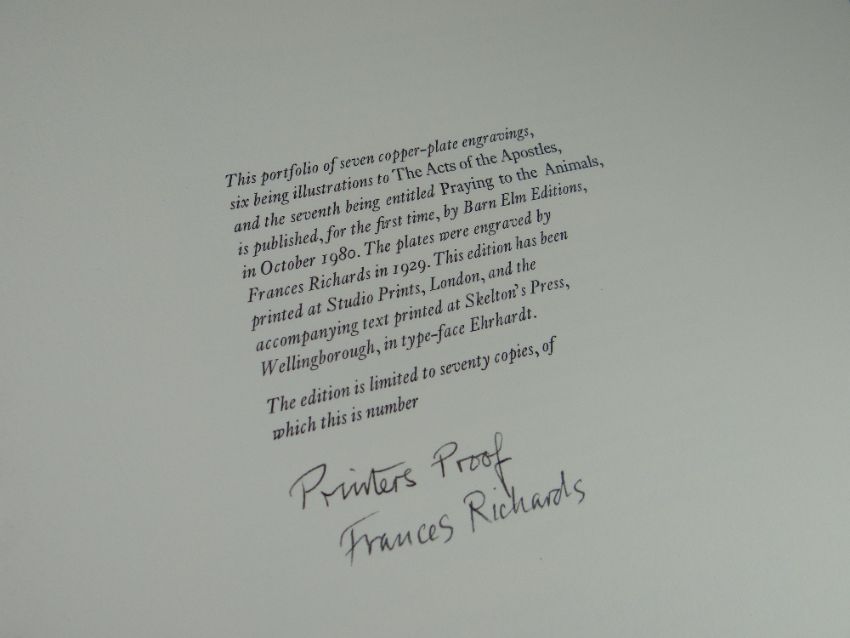 This portfolio of seven copper-plate engravings,
six being illustrations to The Acts of the Apostles,
and the seventh being entitled Praying to the Animals,
is published, for the first time, by Barn Elm Editions,
in October 1980. The plates were engraved by
Frances Richards in 1929. This edition has been
printed at Studio Prints, London, and the
accompanying text printed at Skelton's Press,
Wellingborough, in type-face Ehrhardt.
The edition is limited to seventy copies, of
which this is number
Printers Proof
Frances Richards